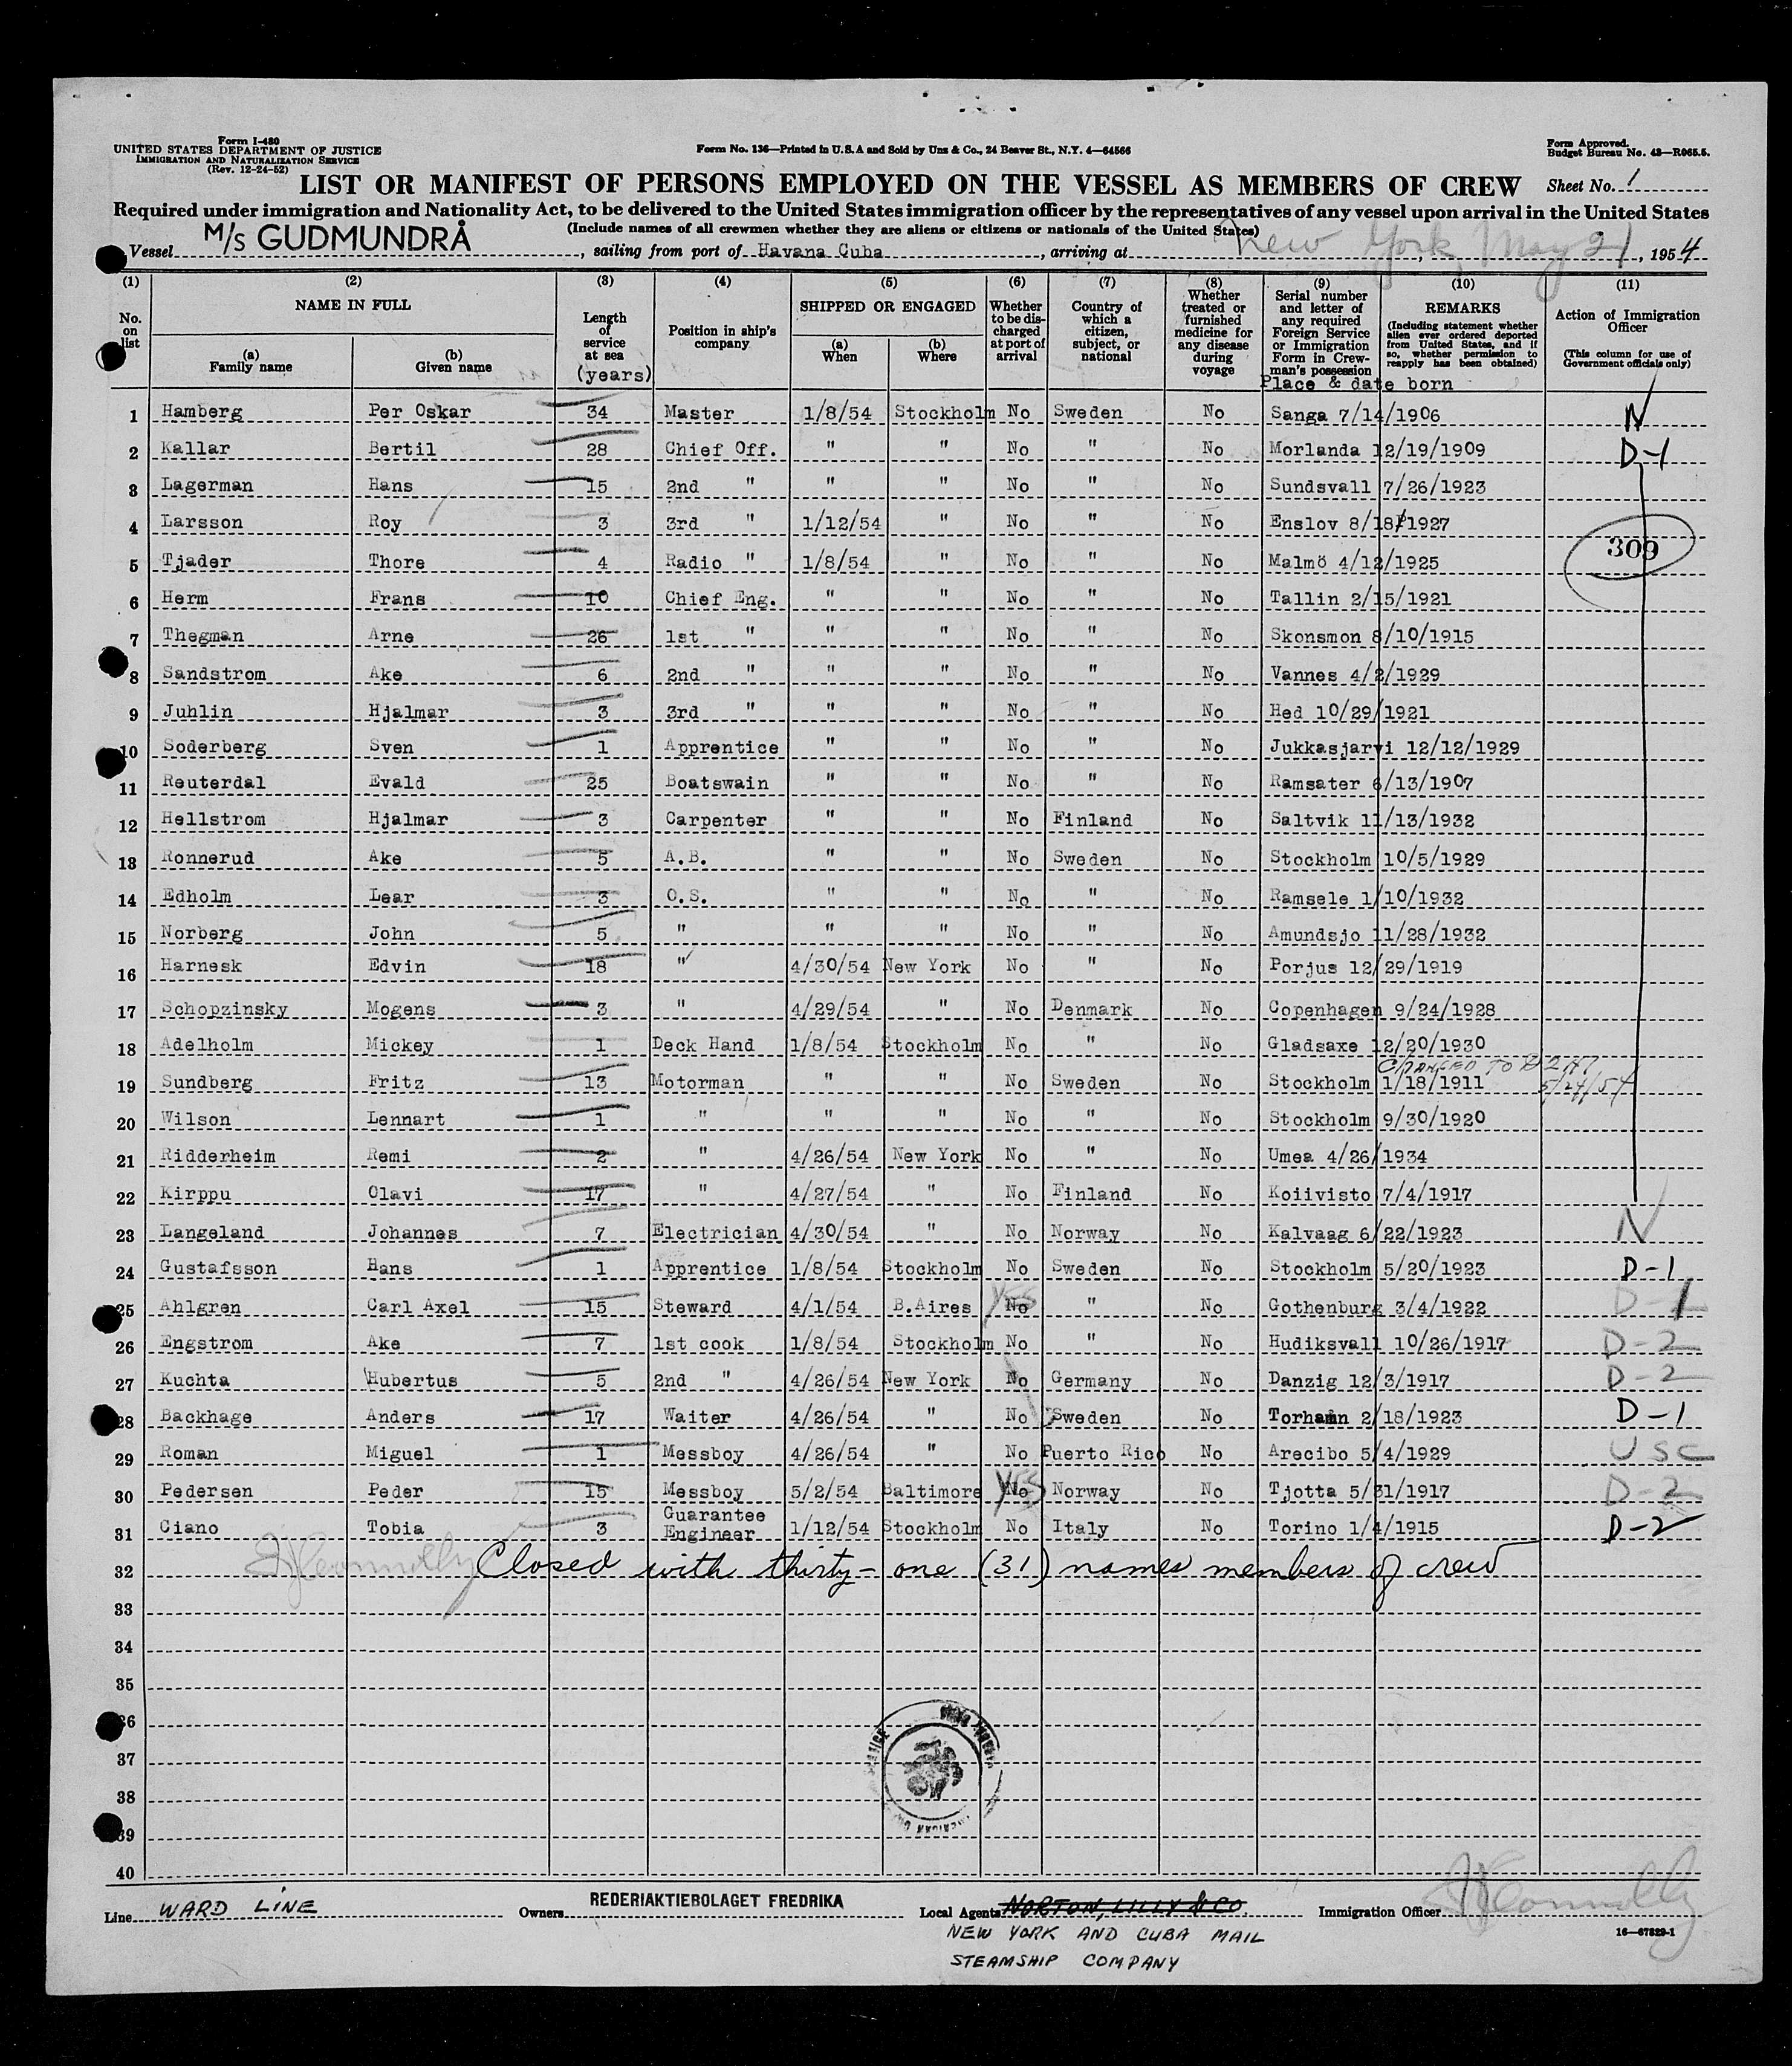 Form I-480
UNITED STATES DEPARTMENT OF JUSTICE
IMMIGRATION AND NATURALIZATION SERVICE
(Rev. 12-24-52)
Form No. 136—Printed in U.S.A and Sold by Unz & Co., 24 Beaver St., N.Y. 4—64566
Form Approved.
Budget Bureau No. 43—R065.5.
LIST OR MANIFEST OF PERSONS EMPLOYED ON THE VESSEL AS MEMBERS OF CREW Sheet No. 1
Required under immigration and Nationality Act, to be delivered to the United States immigration officer by the representatives of any vessel upon arrival in the United States
(Include names of all crewmen whether they are aliens or citizens or nationals of the United States)
Vessel M/S GUDMUNDRÅ, sailing from port of Havana Cuba, arriving at New York, May 21, 1954
(1) (2) (3) (4) (5) (6) (7) (8) (9) (10) (11)
No. on list
NAME IN FULL
(a) Family name
(b) Given name
Length of service at sea (years)
Position in ship's company
SHIPPED OR ENGAGED
(a) When
(b) Where
Whether to be discharged at port of arrival
Country of which a citizen, subject, or national
Whether treated or furnished medicine for any disease during voyage
Serial number and letter of any required Foreign Service or Immigration Form in Crewman's possession
REMARKS
(Including statement whether alien ever ordered deported from United States, and if so, whether permission to reapply has been obtained)
Place & date born
Action of Immigration Officer
(This column for use of Government officials only)
1 Hamberg Per Oskar 34 Master 1/8/54 Stockholm No Sweden No Sanga 7/14/1906 N
2 Kallar Bertil 28 Chief Off. " " No " No Morlanda 12/19/1909 D-1
3 Lagerman Hans 15 2nd " " " No " No Sundsvall 7/26/1923
4 Larsson Roy 3 3rd " 1/12/54 " No " No Enslov 8/18/1927
309
5 Tjader Thore 4 Radio " 1/8/54 " No " No Malmö 4/12/1925
6 Herm Frans 10 Chief Eng. " " No " No Tallin 2/15/1921
7 Thegman Arne 26 1st " " " No " No Skonsmon 8/10/1915
8 Sandstrom Ake 6 2nd " " " No " No Vannes 4/2/1929
9 Juhlin Hjalmar 3 3rd " " " No " No Hed 10/29/1921
10 Soderberg Sven 1 Apprentice " " No " No Jukkasjarvi 12/12/1929
11 Reuterdal Evald 25 Boatswain " " No " No Ramsater 6/13/1907
12 Hellstrom Hjalmar 3 Carpenter " " No Finland No Saltvik 11/13/1932
13 Ronnerud Ake 5 A.B. " " No Sweden No Stockholm 10/5/1929
14 Edholm Lear 3 O.S. " " No " No Ramsele 1/10/1932
15 Norberg John 5 " " " No " No Amundsjo 11/28/1932
16 Harnesk Edvin 18 " 4/30/54 New York No " No Porjus 12/29/1919
17 Schopzinsky Mogens 3 " 4/29/54 " No Denmark No Copenhagen 9/24/1928
18 Adelholm Mickey 1 Deck Hand 1/8/54 Stockholm No " No Gladsaxe 12/20/1930
CHANGED TO D2
19 Sundberg Fritz 13 Motorman " " No Sweden No Stockholm 1/18/1911 5/24/54
20 Wilson Lennart 1 " " " No " No Stockholm 9/30/1920
21 Ridderheim Remi 2 " 4/26/54 New York No " No Umea 4/26/1934
22 Kirppu Olavi 17 " 4/27/54 " No Finland No Koiivisto 7/4/1917
23 Langeland Johannes 7 Electrician 4/30/54 " No Norway No Kalvaag 6/22/1923 N
24 Gustafsson Hans 1 Apprentice 1/8/54 Stockholm No Sweden No Stockholm 5/20/1923 D-1
25 Ahlgren Carl Axel 15 Steward 4/1/54 B.Aires No YES " No Gothenburg 3/4/1922 D-1
26 Engstrom Ake 7 1st cook 1/8/54 Stockholm No " No Hudiksvall 10/26/1917 D-2
27 Kuchta Hubertus 5 2nd " 4/26/54 New York No Germany No Danzig 12/3/1917 D-2
28 Backhage Anders 17 Waiter 4/26/54 " No Sweden No Torhamn 2/18/1923 D-1
29 Roman Miguel 1 Messboy 4/26/54 " No Puerto Rico No Arecibo 5/4/1929 USC
30 Pedersen Peder 15 Messboy 5/2/54 Baltimore No YES Norway No Tjotta 5/31/1917 D-2
31 Ciano Tobia 3 Guarantee Engineer 1/12/54 Stockholm No Italy No Torino 1/4/1915 D-2
32 Closed with thirty-one (31) names members of crew
33
34
35
36
37
38
39
40
Line WARD LINE Owners REDERIAKTIEBOLAGET FREDRIKA Local Agents NORTON, LILLY & CO. Immigration Officer
NEW YORK AND CUBA MAIL
STEAMSHIP COMPANY
16—67829-1